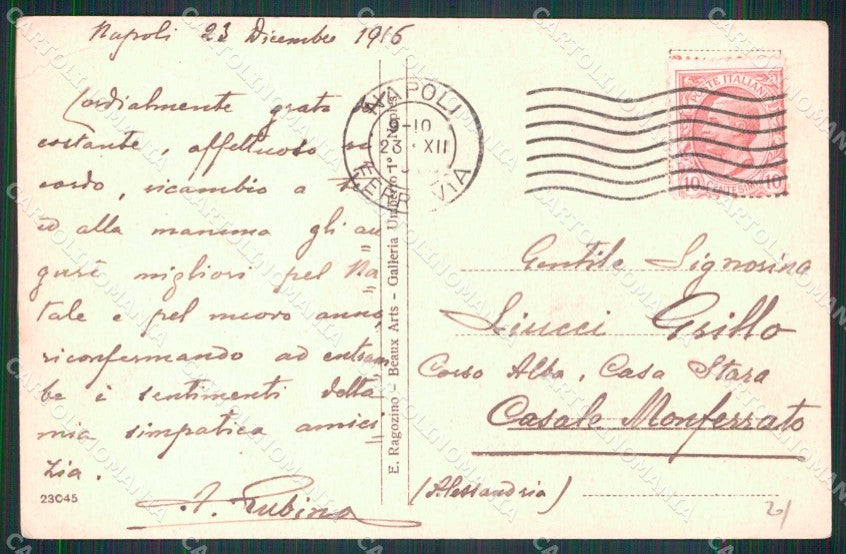 Napoli 23 Dicembre 1916
Cordialmente grato
costante, affettuoso
cordo, ricambio a
ed alla mamma gli au
guri migliori pel Na
tale e pel nuovo anno
riconfermando ad entram
be i sentimenti della
mia simpatica amici
zia.
23045
E. Ragozino – Beaux Arts – Galleria Umberto 1° – Naples
NAPOLI
9-10
23 XII
FERROVIA
POSTE ITALIANE
10 CENTESIMI 10
Gentile Signorina
Liucci Grillo
Corso Alba, Casa Stara
Casale Monferrato
(Alessandria)
21
CARTOLINOMANIA